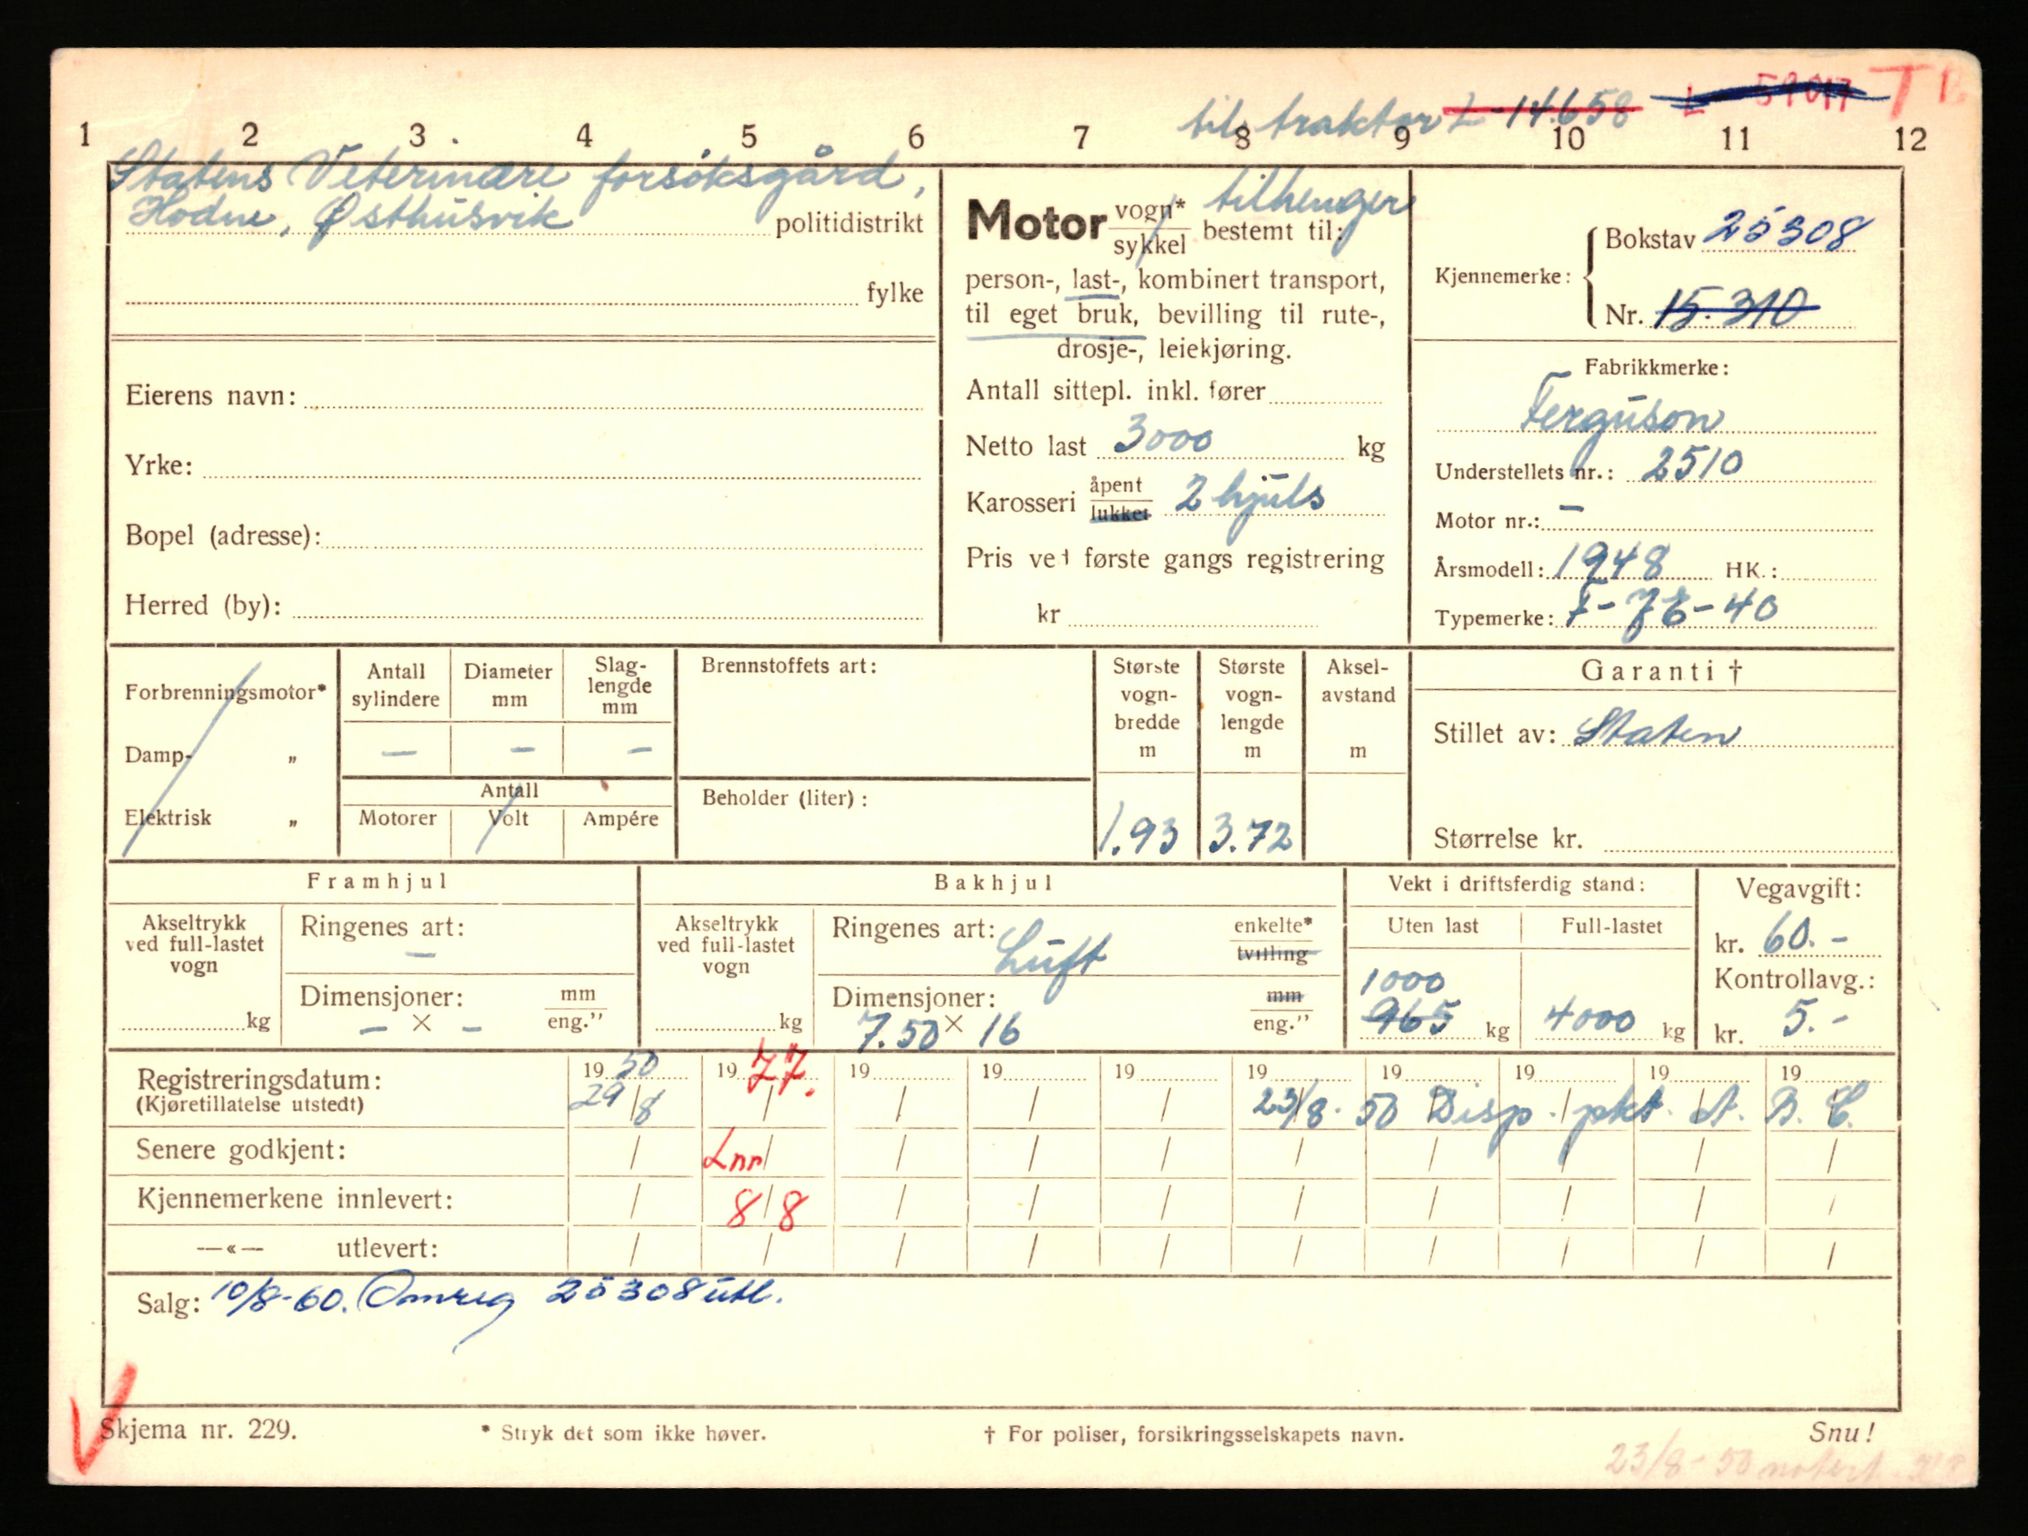 til traktor L-14.658 L 59017 T
1 2 3 4 5 6 7 8 9 10 11 12
Statens Veterinære forsøksgård,
Hodne, Østhusvik politidistrikt
fylke
Eierens navn:
Yrke:
Bopel (adresse):
Herred (by):
tilhenger
Motor vogn* sykkel bestemt til:
person-, last-, kombinert transport,
til eget bruk, bevilling til rute-,
drosje-, leiekjøring.
Antall sittepl. inkl. fører
Netto last 3000 kg
Karosseri åpent lukket 2 hjuls
Pris ved første gangs registrering
kr
Kjennemerke: Bokstav 25308
Nr. 15.310
Fabrikkmerke:
Ferguson
Understellets nr.: 2510
Motor nr.: -
Årsmodell: 1948 HK.:
Typemerke: F-JE-40
Forbrenningsmotor*
Damp- "
Elektrisk "
Antall sylindere
Diameter mm
Slag-lengde mm
- - -
Antall
Motorer Volt Ampére
Brennstoffets art:
Beholder (liter):
Største vogn-bredde m
1.93
Største vogn-lengde m
3.72
Aksel-avstand m
Garanti †
Stillet av: Staten
Størrelse kr.
Framhjul
Akseltrykk ved full-lastet vogn
kg
Ringenes art: -
Dimensjoner: mm eng."
- × -
Bakhjul
Akseltrykk ved full-lastet vogn
kg
Ringenes art: Luft enkelte* tvilling
Dimensjoner: mm eng."
7.50 × 16
Vekt i driftsferdig stand:
Uten last Full-lastet
1000
965 kg 4000 kg
Vegavgift:
kr. 60.-
Kontrollavg.:
kr. 5.-
Registreringsdatum: 19 50 19 77. 19 19 19 19 19 19 19 19
(Kjøretillatelse utstedt) 29/8 / / / / 23/8-50 Disp. pkt. A. B. C.
Senere godkjent: / Lnr / / / / / / / / /
Kjennemerkene innlevert: / 8/8 / / / / / / / /
—«— utlevert: / / / / / / / / / /
Salg: 10/8-60. Omreg 25308 utl.
Skjema nr. 229. * Stryk det som ikke høver. † For poliser, forsikringsselskapets navn. Snu!
23/8-50 notert